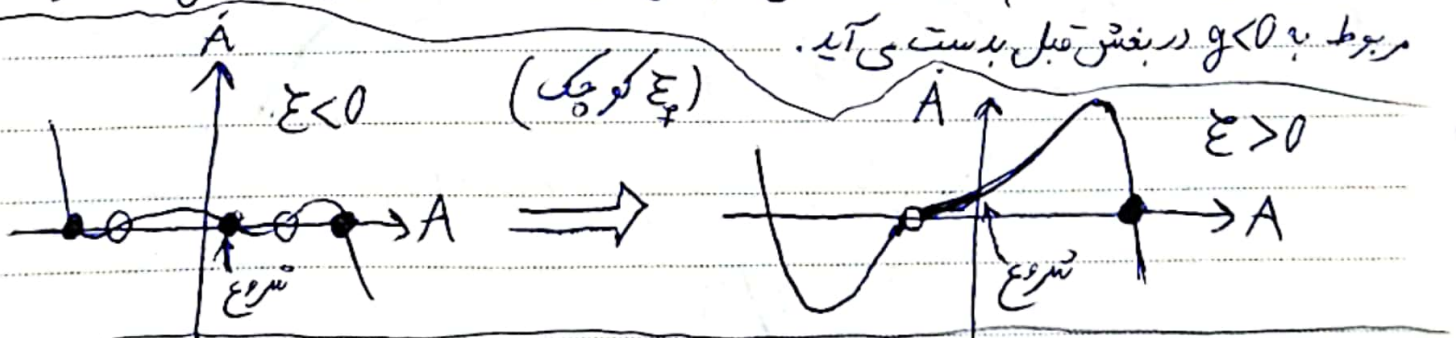 مربوط به g<0 در بخش قبل بدست می آید.
Ȧ
ε<0
(ε کوچک)
Ȧ
ε>0
A
A
شروع
شروع